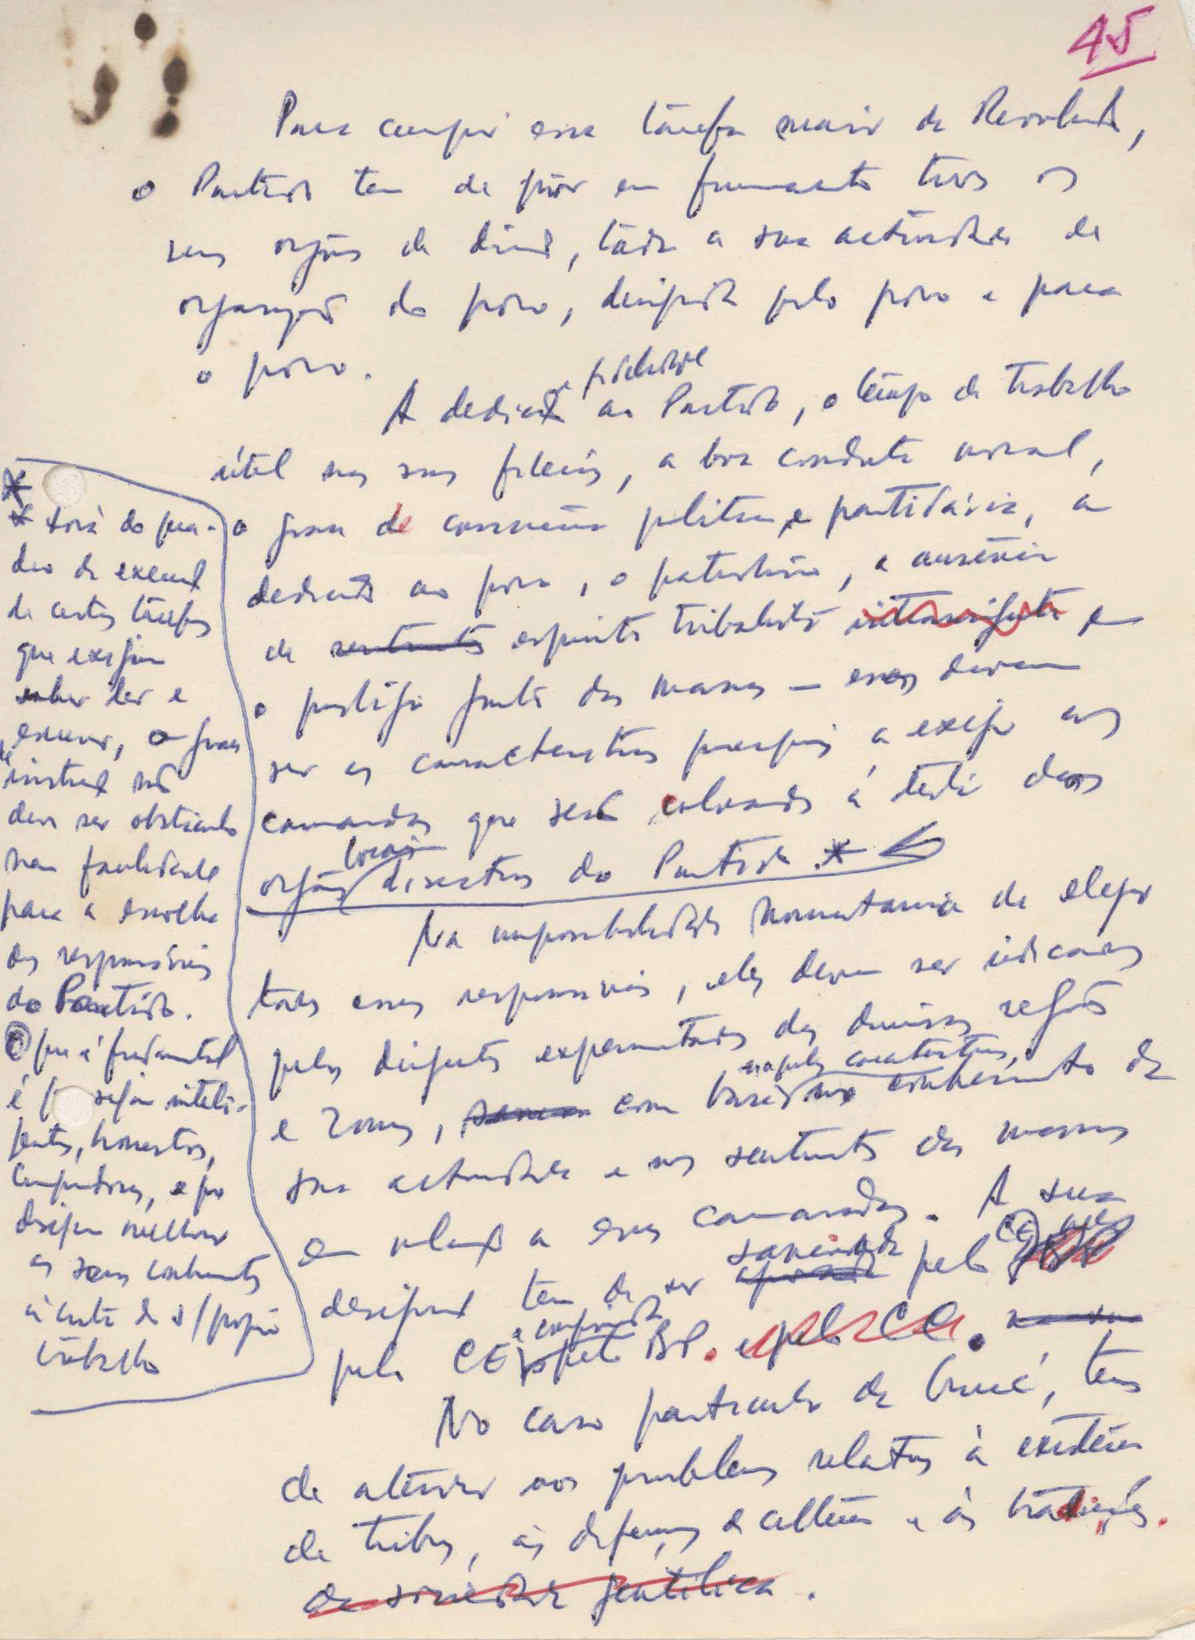 45
Para cumprir essa tarefa maior da Revolução,
o Partido tem de pôr em funcionamento todos os
seus orgãos de direcção, toda a sua actividade de
organização do povo, dirigida pelo povo e para
o povo.
A dedicação e fidelidade ao Partido, o tempo de trabalho
útil nas suas fileiras, a boa conduta moral,
o grau de consciência política e partidária, a
dedicação ao povo, o patriotismo, a ausência
de sentimento espírito tribalista e
o prestígio junto das massas — esses devem
ser as características principais a exigir aos
camaradas que serão colocados à testa dos
orgãos locais directivos do Partido. *
* Fora do qua-
dro da execução
de certas tarefas
que exigem
saber ler e
escrever, o grau
instrução não
deve ser obstáculo
nem facilidade
para a escolha
dos responsáveis
do Partido.
O que é fundamental
é q sejam inteli-
gentes, honestos,
cumpridores, e q
desejem melhorar
os seus conhecimentos
à custa do s/ próprio
trabalho
Na impossibilidade momentanea de eleger
todos esses responsáveis, eles devem ser indicados
pelos dirigentes experimentados das diversas regiões
e zonas, com base naquelas caracteristicas, no conhecimento da
sua actividade e nos sentimentos das massas
em relação a esses camaradas. A sua
designação tem de ser sancionada pelo
pelo CE e confirmada pelo BP. e pelo CC.
No caso particular da Guiné, temos
de atender aos problemas relativos à existência
de tribos, às diferenças de cultura e às tradições.
da sociedade gentílica.